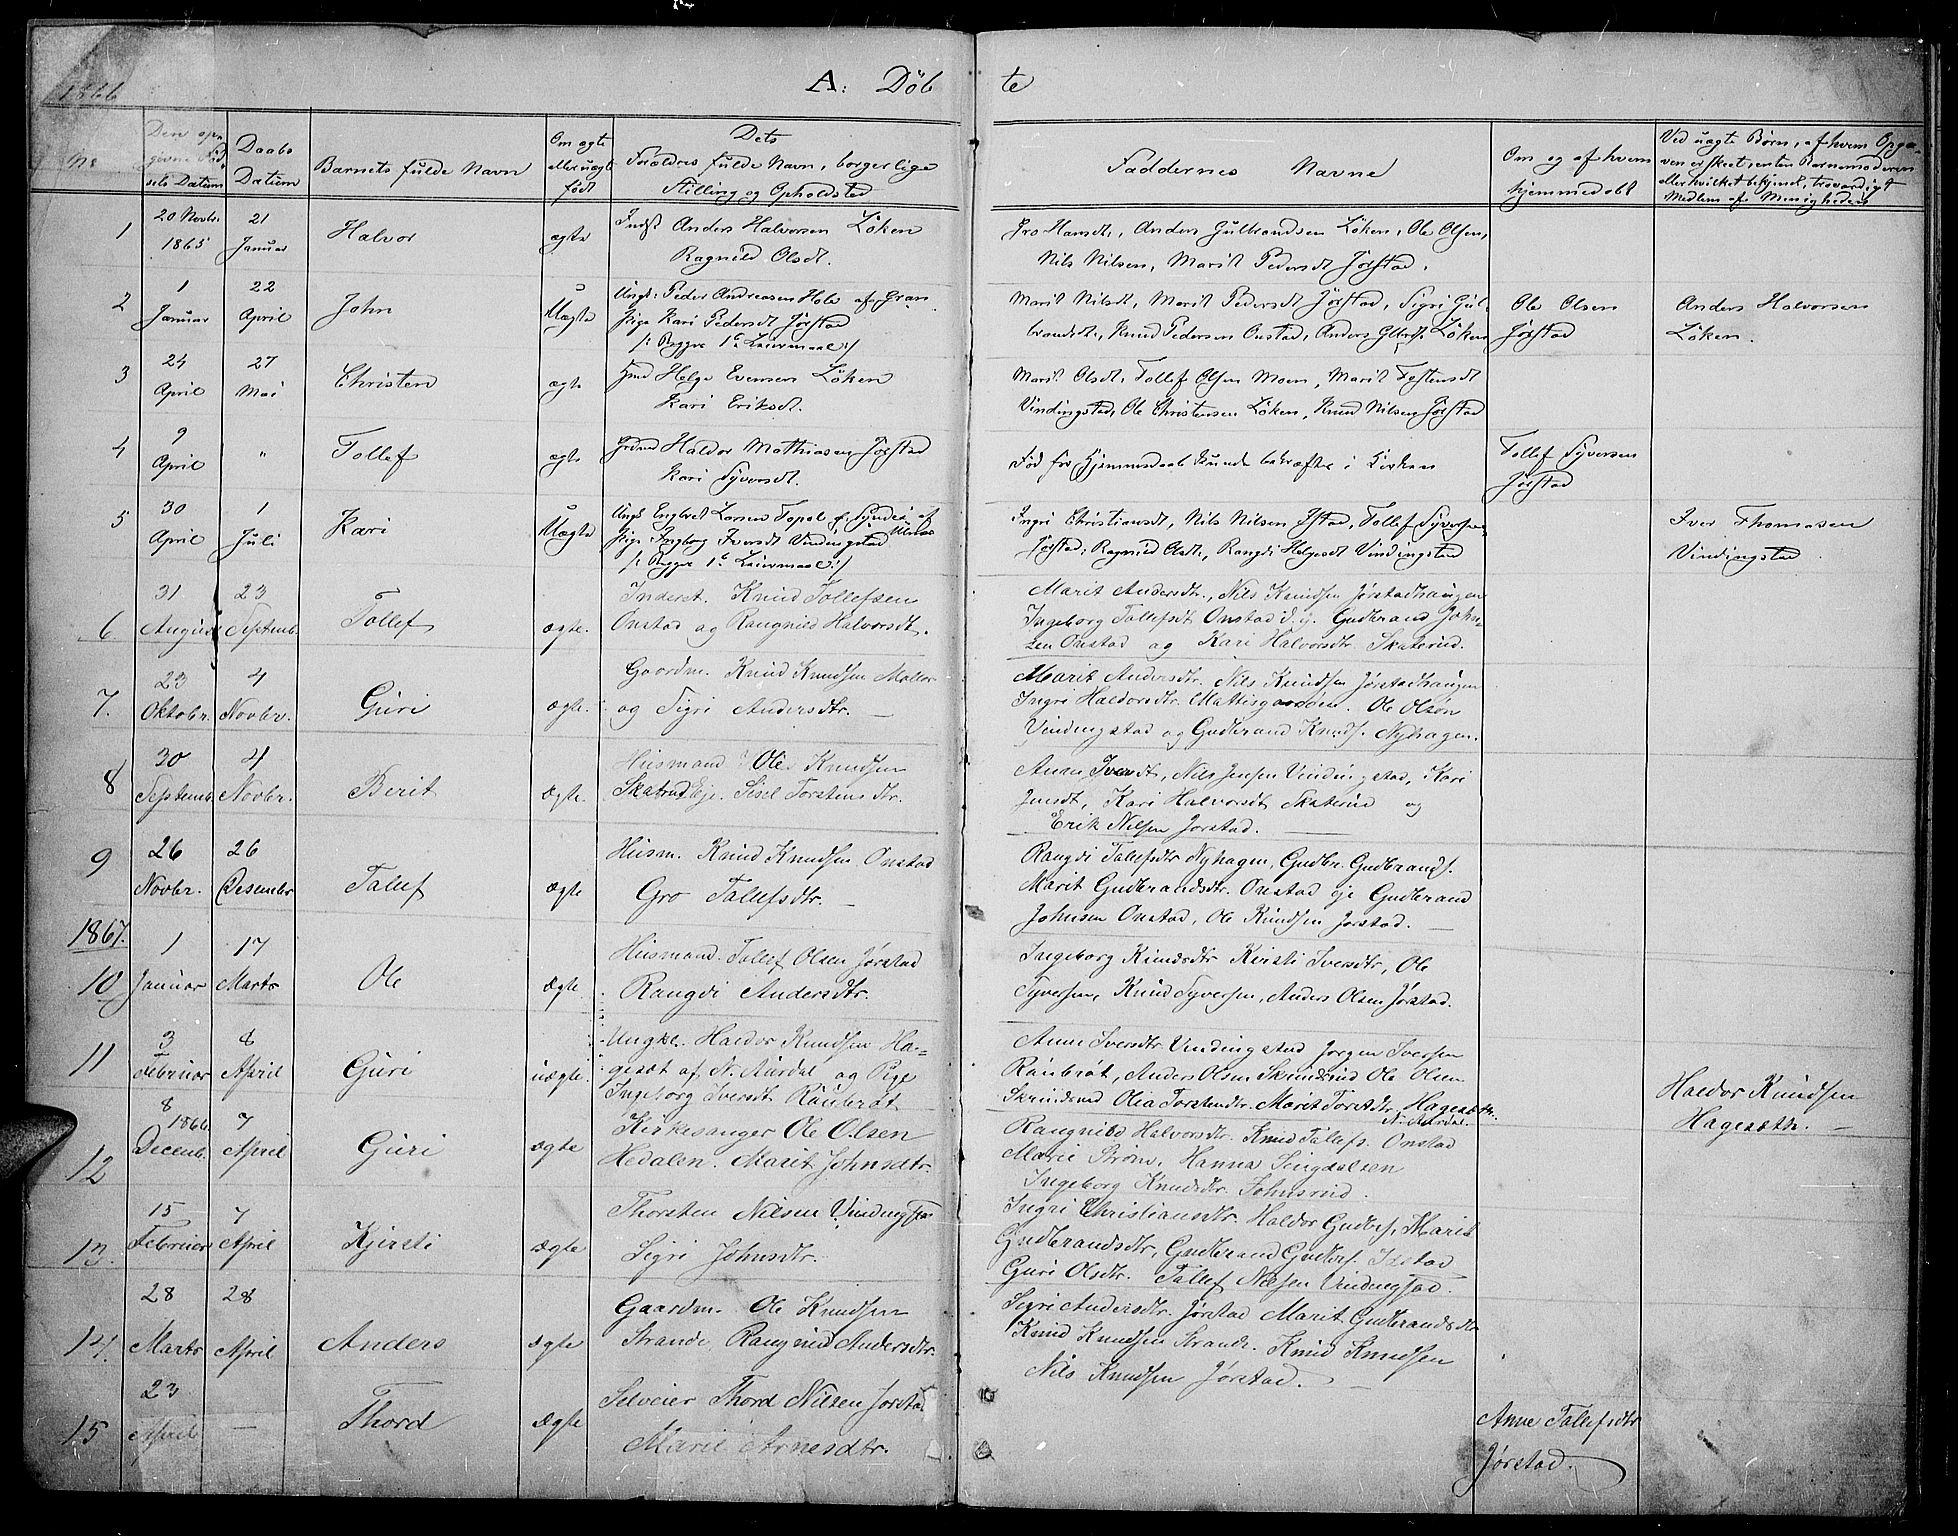 1866
A. Døb te
No
Den opgivne Fødsels Datum
Daabs Datum
Barnets fulde Navn
Om ægte eller uægte født
Dets Forældres fulde Navn, borgerlige Stilling og Opholdsted
Faddernes Navne
Om og af hvem hjemmedøbt
Ved uægte Børn, af hvem Opgaven er skeet, enten Barnemoderen eller hvilket bekjendt, troværdigt Medlem af Menigheden
1 20 Novbr. 1865 21 Januar Halvor ægte Indst Anders Halvorsen Löken
Ragnild Olsdt.
Gro Hansdt, Anders Gulbrandsen Löken, Ole Olsen,
Nils Nilsen, Marit Pedersdt Jørstad.
2 1 Januar 22 April John Uægte Ungk: Peder Andreasen Hole af Gran
Pige Kari Pedersdt Jørstad
/: Begges 1ste Leiermaal :/
Marit Nilsdt, Marit Pedersdt Jørstad, Sigri Gul-
brandsdt, Knud Pedersen Onstad, Anders Löken
Ole Olsen
Jørstad
Anders Halvorsen
Löken.
3 24 April 27 Mai Christen ægte Helge Evensen Löken
Kari Eriksdt.
Marit Olsdt, Tollef Olsen Moen, Marit Testensdt
Vindingstad, Ole Christensen Löken, Knud Nilsen Jørstad
4 9 April " Tollef ægte Haldor Mathiasen Jørstad
Kari Syversdt.
Død før Hjemmedaab kunde bekræftes i Kirken
Tollef Syversen
Jørstad
5 30 April 1 Juli Kari Uægte Ungk Engbret Larsen
Pige Ingborg Iversdt Vindingstad
/: Begges 1ste Leiermaal :/
Ingri Christiansdt, Nils Nilsen Istad, Tollef Syversen
Jørstad, Ragnild Olsdt, Rangdi Helgesdt Vindingstad
Iver Thomasen
Vindingstad
6 31 August 23 Septemb. Tollef ægte. Inderst. Knud Tollefsen
Onstad og Rangnild Halvorsdt.
Marit Andersdt., Nils Knudsen Jørstadhaugen
Ingeborg Tollefsdt Onstad Gudbrand John-
sen Onstad og Kari Halvorsdtr Skaterud.
7. 23 Oktobr. 4 Novbr. Guri ægte. Gaardm. Knud Knudsen
og Sigri Andersdtr. —
Marit Andersdtr. Nils Knudsen Jørstadhaugen
Ingri Haldorsdtr. Ole Olsøn
Vindingstad og Gudbrand Knuds. Nyhagen.
8 30 Septemb. 4 Novbr. Berit Ægte. Husmand Ole Knudsen
Skatrud Eje. Sisel Torstens dtr.
Anne Iversdt, Nils Jensen Vindingstad, Kari
Jensdt, Kari Halvorsdt Skaterud og
Erik Nilsen Jorstad. —
9 26 Novbr. 26 Desembr Talef Ægte Husm. Knud Knudsen Onstad
Gro Tallefsdtr. —
Rangdi Talefsdtr Nyhagen, Gudbr. Gudbrands.
Marit Gudbrandsdtr. Onstad eje Gudbrand
Johnsen Onstad, Ole Knudsen Jorstad. —
1867.
10 1 Januar 17 Marts Ole Ægte Husmand. Tallef Olsen Jørstad
Rangdi Andersdtr.
Ingeborg Knudsdtr Kirsti Iversdtr, Ole
Syversen, Knud Syversen, Anders Olsen Jørstad.
11 3 Februar 8 April Guri uægte. Ungkl. Haldor Knudsen Ha-
gesæt af N. Aurdal og Pige
Ingeborg Iversdt Raubrøt
Anne Iversdtr Vindingstad Jorgen Iversen
Raubrøt, Anders Olsen Skrindsrud Ole Olsen
Skrindsrud Olea Torstendtr. Marit Torstdtr. Hagesæth.
N. Aurdal.
Haldor Knudsen
Hagesæth. —
12 8 1866 Decemb. 7 April Guri ægte Kirkesanger Ole Olsen
Hedalen. Marit Johnsdtr.
Rangnild Halvorsdtr. Knud Tallefs. Onstad
Marie Strøm, Hanna Singdalsen
Ingeborg Knudsdtr. Johnsrud.
13. 15 Februar 7 April Kjirsti Ægte Thorsten Nilsen Vindingstad
Sigri Johnsdtr.
Ingri Christiansdtr. Haldor Gudbrs, Marit
Gudbrandsdtr, Gudbrand Gudbrs. Istad
Guri Olsdtr. Tallef Nilsen Vindingstad.
14. 28 Marts 28 April Anders Ægte Gaardm. Ole Knudsen
Strande, Rangnild Andersdtr.
Sigri Andersdtr. Jørstad Marit Gudbrandsdtr
Knud Knudsen Strande. Knud Knudsen
Nils Knudsen Jørstad. —
15 23 April — Thord Ægte Selveier Thord Nilsen Jorstad
Marie Arnesdtr.
Anne Tallefsdtr
Jørstad.